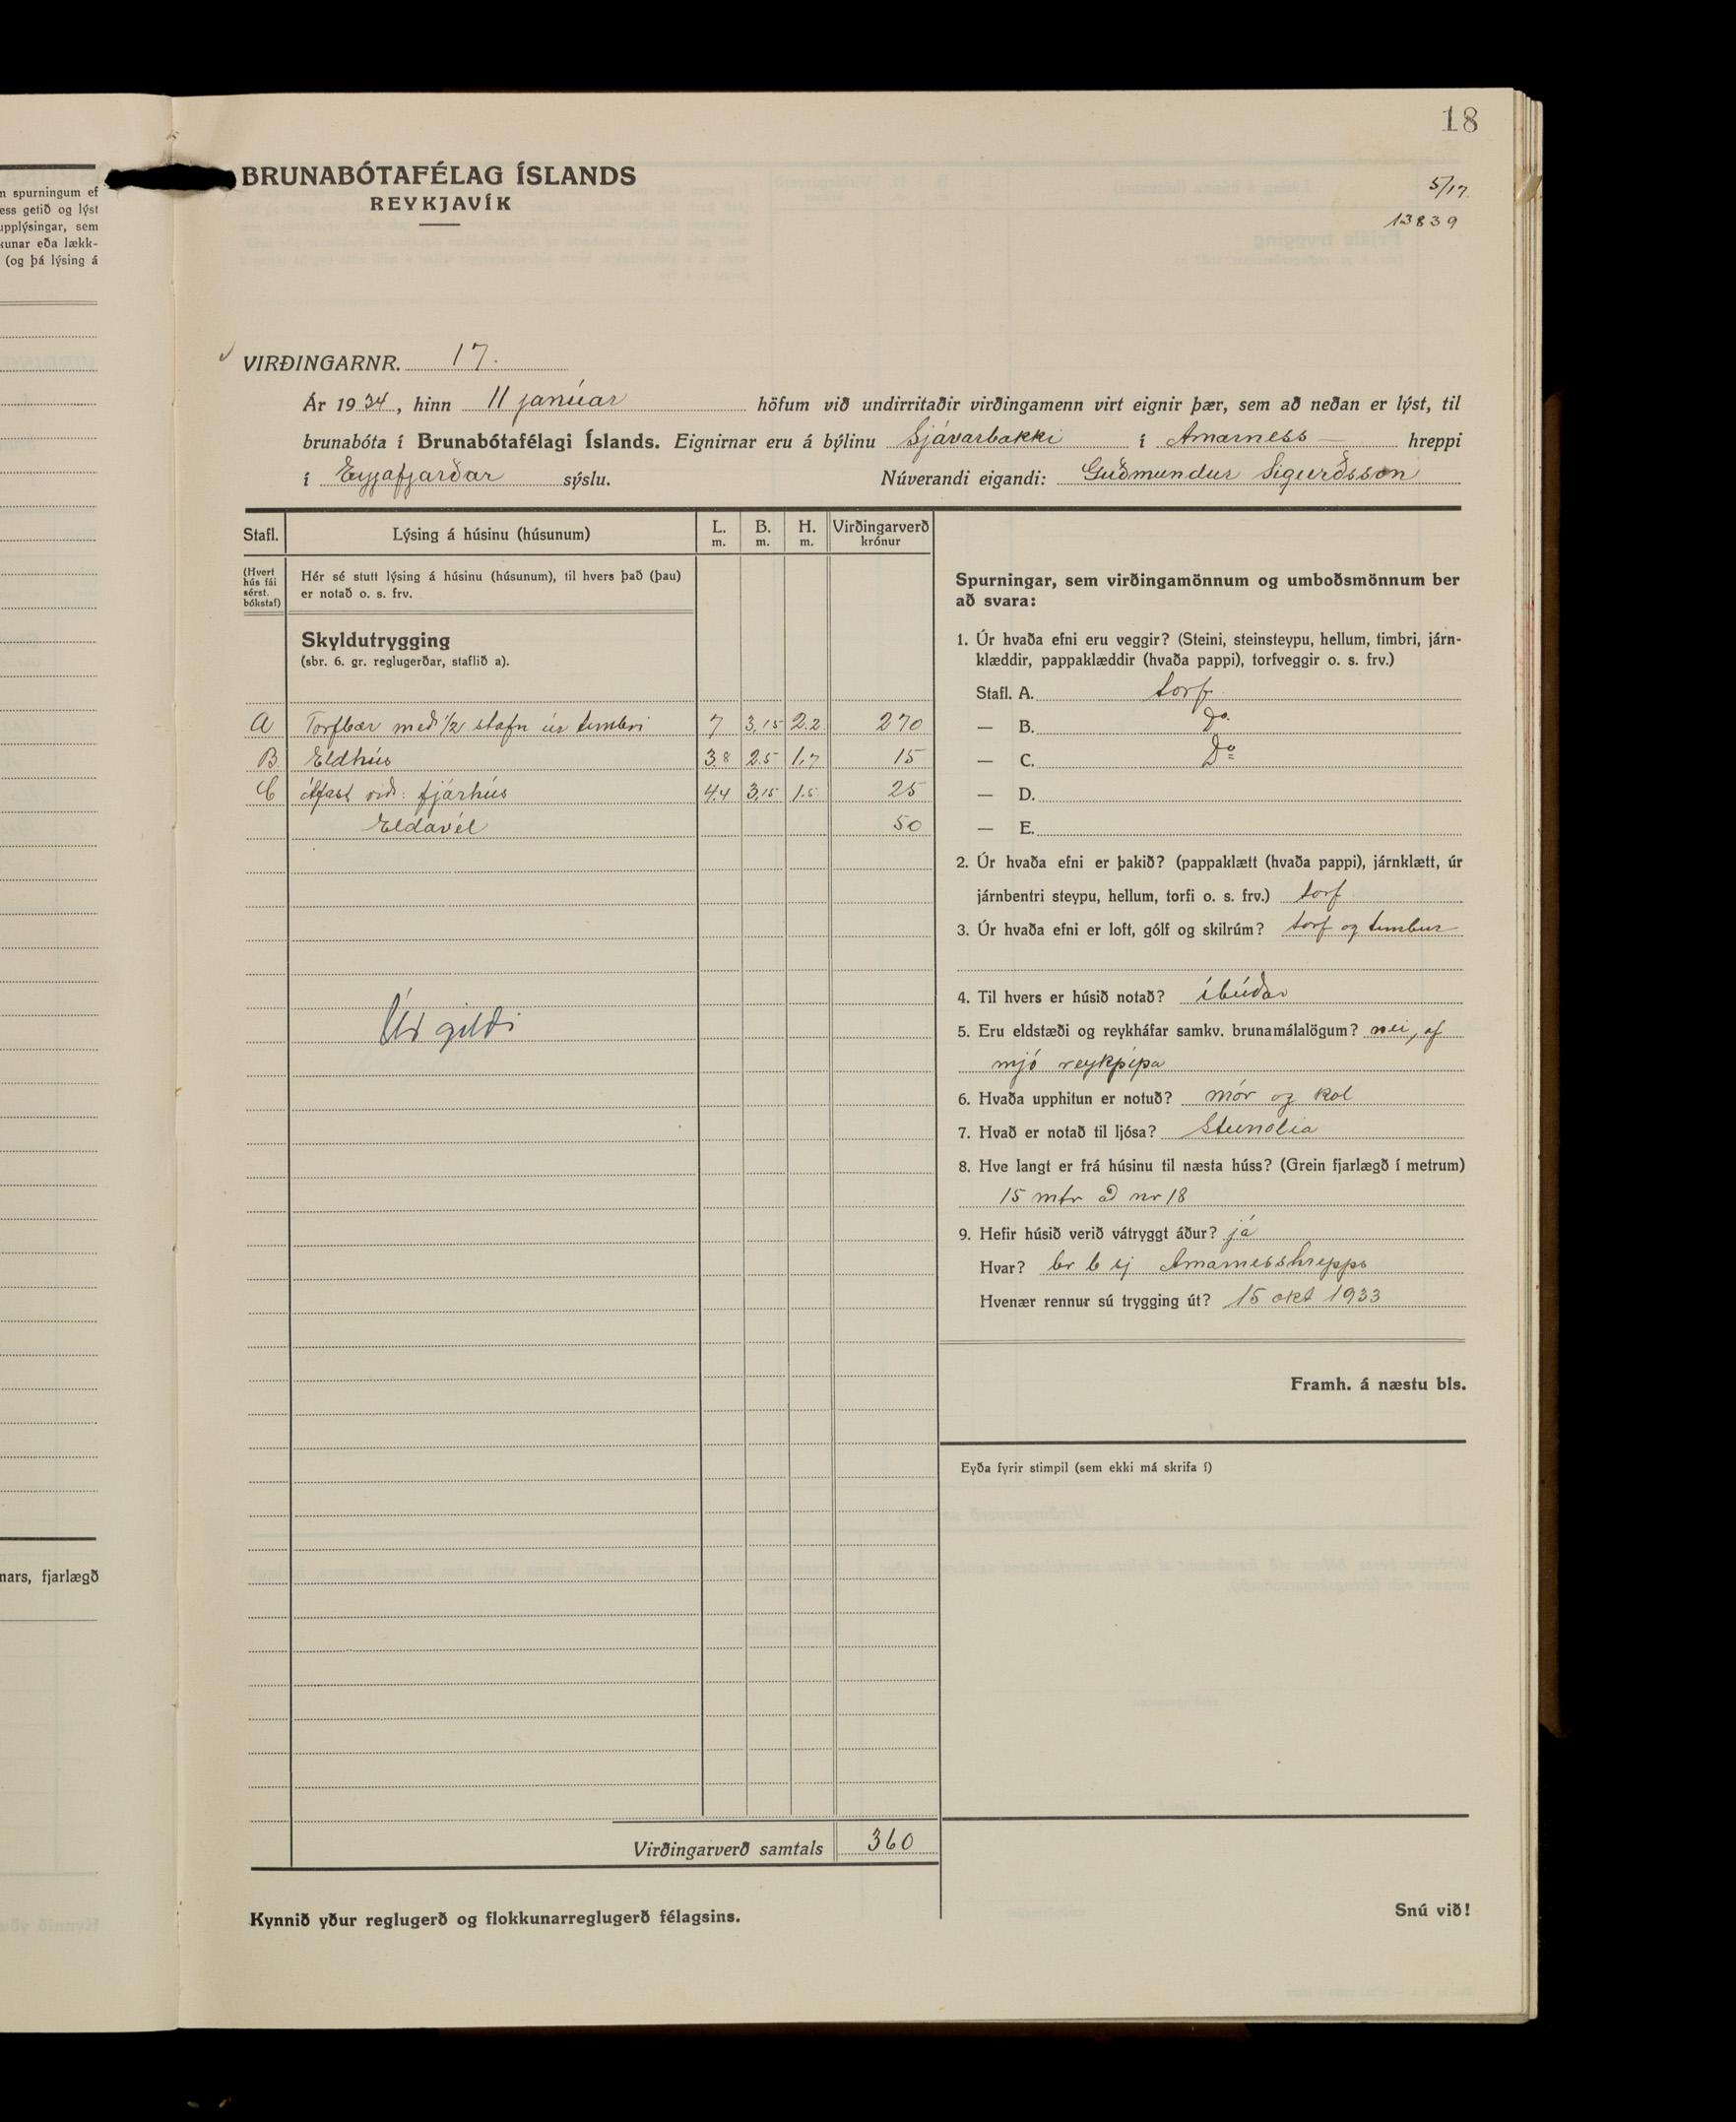 18
BRUNABÓTAFÉLAG ÍSLANDS
REYKJAVÍK
5/17
13839
n spurningum ef
ess getið og lýst
upplýsingar, sem
kunar eða lækk-
(og þá lýsing á
VIRÐINGARNR. 17.
Ár 1934, hinn 11 janúar höfum við undirritaðir virðingamenn virt eignir þær, sem að neðan er lýst, til
brunabóta í Brunabótafélagi Íslands. Eignirnar eru á býlinu Sjávarbakki í Arnarness hreppi
í Eyjafjarðar sýslu. Núverandi eigandi: Guðmundur Sigurðsson
Stafl. Lýsing á húsinu (húsunum) L. m. B. m. H. m. Virðingarverð krónur
(Hvert hús fái sérst. bókstaf)
Hér sé stutt lýsing á húsinu (húsunum), til hvers það (þau)
er notað o. s. frv.
Skyldutrygging
(sbr. 6. gr. reglugerðar, staflið a).
A Torfbær með 1/2 stafn úr timbri 7 3,15 2.2 270
B Eldhús 3.8 2.5 1.7 15
C Áfast við: fjárhús 4.4 3,15 1.5 25
Eldavél 50
Úr gildi
Virðingarverð samtals 360
Kynnið yður reglugerð og flokkunarreglugerð félagsins.
Spurningar, sem virðingamönnum og umboðsmönnum ber
að svara:
1. Úr hvaða efni eru veggir? (Steini, steinsteypu, hellum, timbri, járn-
klæddir, pappaklæddir (hvaða pappi), torfveggir o. s. frv.)
Stafl. A. torf
— B. Do
— C. Do
— D.
— E.
2. Úr hvaða efni er þakið? (pappaklætt (hvaða pappi), járnklætt, úr
járnbentri steypu, hellum, torfi o. s. frv.) torf
3. Úr hvaða efni er loft, gólf og skilrúm? torf og timbur
4. Til hvers er húsið notað? íbúðar
5. Eru eldstæði og reykháfar samkv. brunamálalögum? nei, of
mjó reykpípa
6. Hvaða upphitun er notuð? mór og kol
7. Hvað er notað til ljósa? Steinolía
8. Hve langt er frá húsinu til næsta húss? (Grein fjarlægð í metrum)
15 mtr að nr 18
9. Hefir húsið verið vátryggt áður? já
Hvar? br b sj Arnarnesshrepps
Hvenær rennur sú trygging út? 15 okt 1933
Framh. á næstu bls.
Eyða fyrir stimpil (sem ekki má skrifa í)
nars, fjarlægð
Snú við!